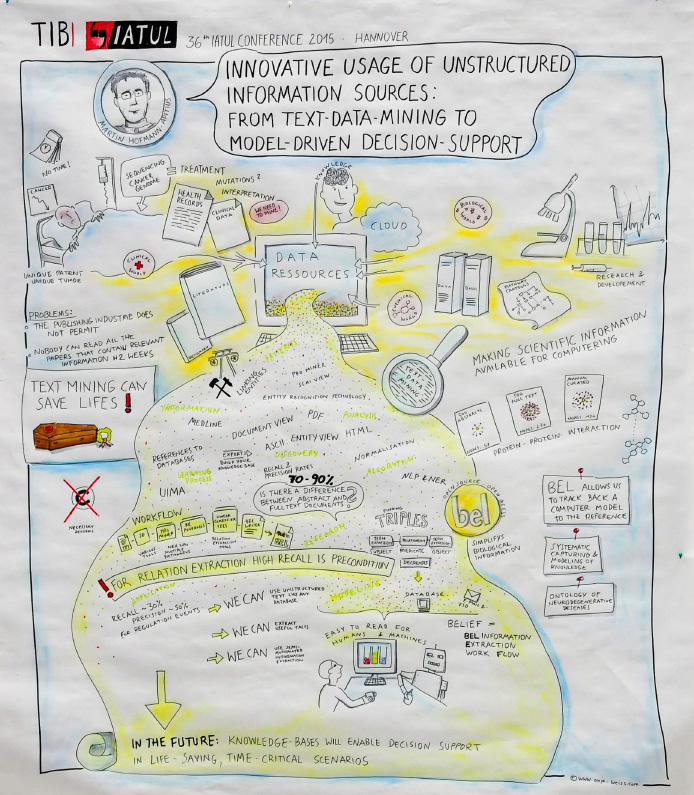 TIB IATUL 36th IATUL CONFERENCE 2015 · HANNOVER
INNOVATIVE USAGE OF UNSTRUCTURED
INFORMATION SOURCES:
FROM TEXT-DATA-MINING TO
MODEL-DRIVEN DECISION-SUPPORT
MARTIN HOFMANN-APITIUS
NO TIME!
CANCER
UNIQUE PATIENT
UNIQUE TUMOR
SEQUENCING
CANCER
GENOME
= TREATMENT
MUTATIONS?
INTERPRETATION
HEALTH
RECORDS
CLINICAL
DATA
WE NEED
TO MINE!
KNOWLEDGE
CLOUD
BIOLOGICAL
WORLD
CLINICAL
WORLD
CHEMICAL
WORLD
DATA
RESSOURCES
LITERATURE
RESEARCH &
DEVELOPEMENT
PROBLEMS:
THE PUBLISHING INDUSTRIE DOES
NOT PERMIT
NOBODY CAN READ ALL THE
PAPERS THAT CONTAIN RELEVANT
INFORMATION IN 2 WEEKS
TEXT MINING CAN
SAVE LIFES!
LINKING
ENTITIES
TEXT
DATA
MINING
MAKING SCIENTIFIC INFORMATION
AVAILABLE FOR COMPUTERING
PROTEIN-PROTEIN INTERACTION
PRO MINER
SCAI VIEW
ENTITY RECOGNITION TECHNOLOGY
INFORMATION
MEDLINE
DOCUMENT VIEW
PDF
ANALYSIS
ASCII
ENTITY VIEW
HTML
REFERENCES TO
DATABASES
EXPERT
BUILD YOUR
KNOWLEDGE BASE
DISCOVERY
NORMALISATION
LEARNING
PROCESS
RECALL &
PRECISION RATES
ALGORYTHM
70-90%
UIMA
NLP & NER
IS THERE A DIFFERENCE
BETWEEN ABSTRACT AND
FULLTEXT DOCUMENTS?
WORKFLOW
RESEARCH
TRIPLES
SUBJECT
PREDICATE
OBJECT
DATABASE
bel
SIMPLIFYS
BIOLOGICAL
INFORMATION
BEL ALLOWS US
TO TRACK BACK A
COMPUTER MODEL
TO THE REFERENCE
SYSTEMATIC
CAPTURING &
MODELING OF
KNOWLEDGE
ONTOLOGY OF
NEURODEGENERATIVE
DISEASES
! FOR RELATION EXTRACTION HIGH RECALL IS PRECONDITION
MODELING
RECALL ~30%
PRECISION ~50%
FOR REGULATION EVENTS
WE CAN USE UNSTRUCTURED
TEXT LIKE ANY
DATABASE
WE CAN EXTRACT
USEFUL FACTS
WE CAN USE SEMI-
AUTOMATED
INFORMATION
EXTRACTION
EASY TO READ FOR
HUMANS & MACHINES
BELIEF =
BEL INFORMATION
EXTRACTION
WORK FLOW
IN THE FUTURE: KNOWLEDGE-BASES WILL ENABLE DECISION SUPPORT
IN LIFE-SAVING, TIME-CRITICAL SCENARIOS